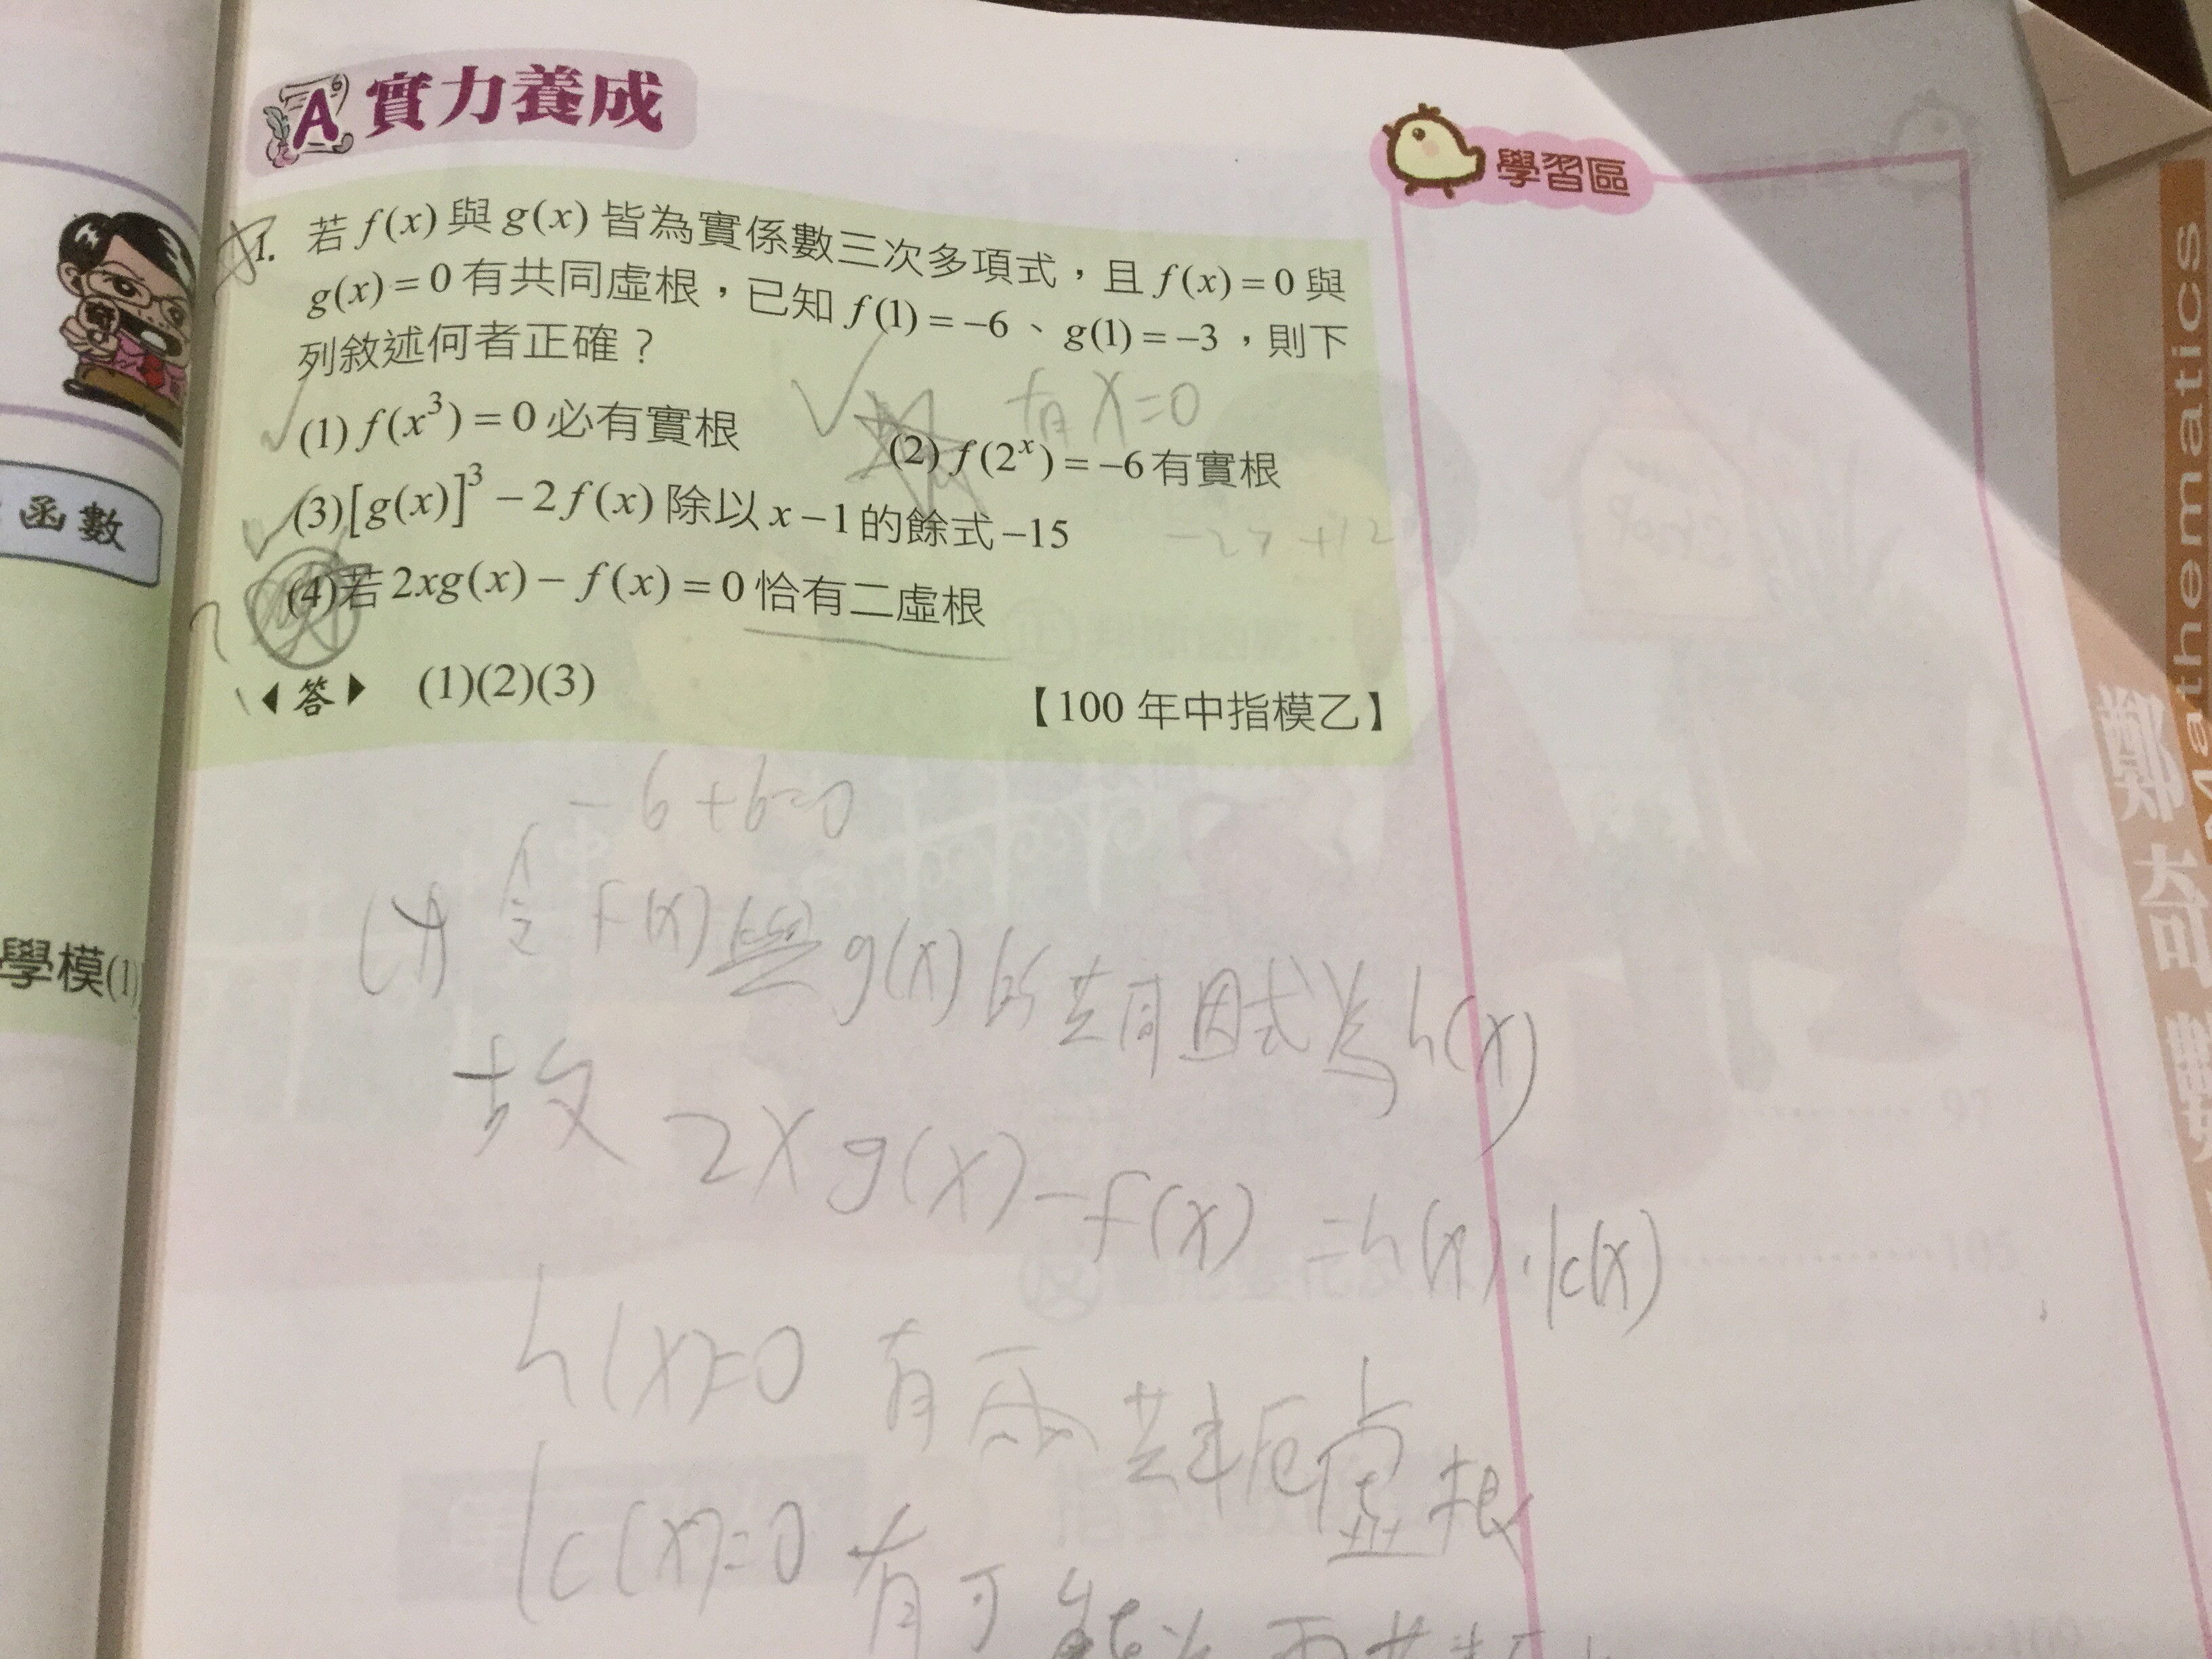 A 實力養成
學習區
1. 若 f(x) 與 g(x) 皆為實係數三次多項式，且 f(x) = 0 與
g(x) = 0 有共同虛根，已知 f(1) = −6、g(1) = −3，則下
列敘述何者正確？
有 x=0
(1) f(x³) = 0 必有實根
(2) f(2ˣ) = −6 有實根
(3) [g(x)]³ − 2f(x) 除以 x − 1 的餘式 −15
−27+12
(4) 若 2xg(x) − f(x) = 0 恰有二虛根
◀答▶ (1)(2)(3)
【100 年中指模乙】
函數
學模(1)
−6+6=0
(4) 令 f(x) 與 g(x) 的共同因式為 h(x)
故 2x g(x) − f(x) = h(x)·k(x)
h(x)=0 有兩共軛虛根
k(x)=0 有可能為兩共軛
Mathematics